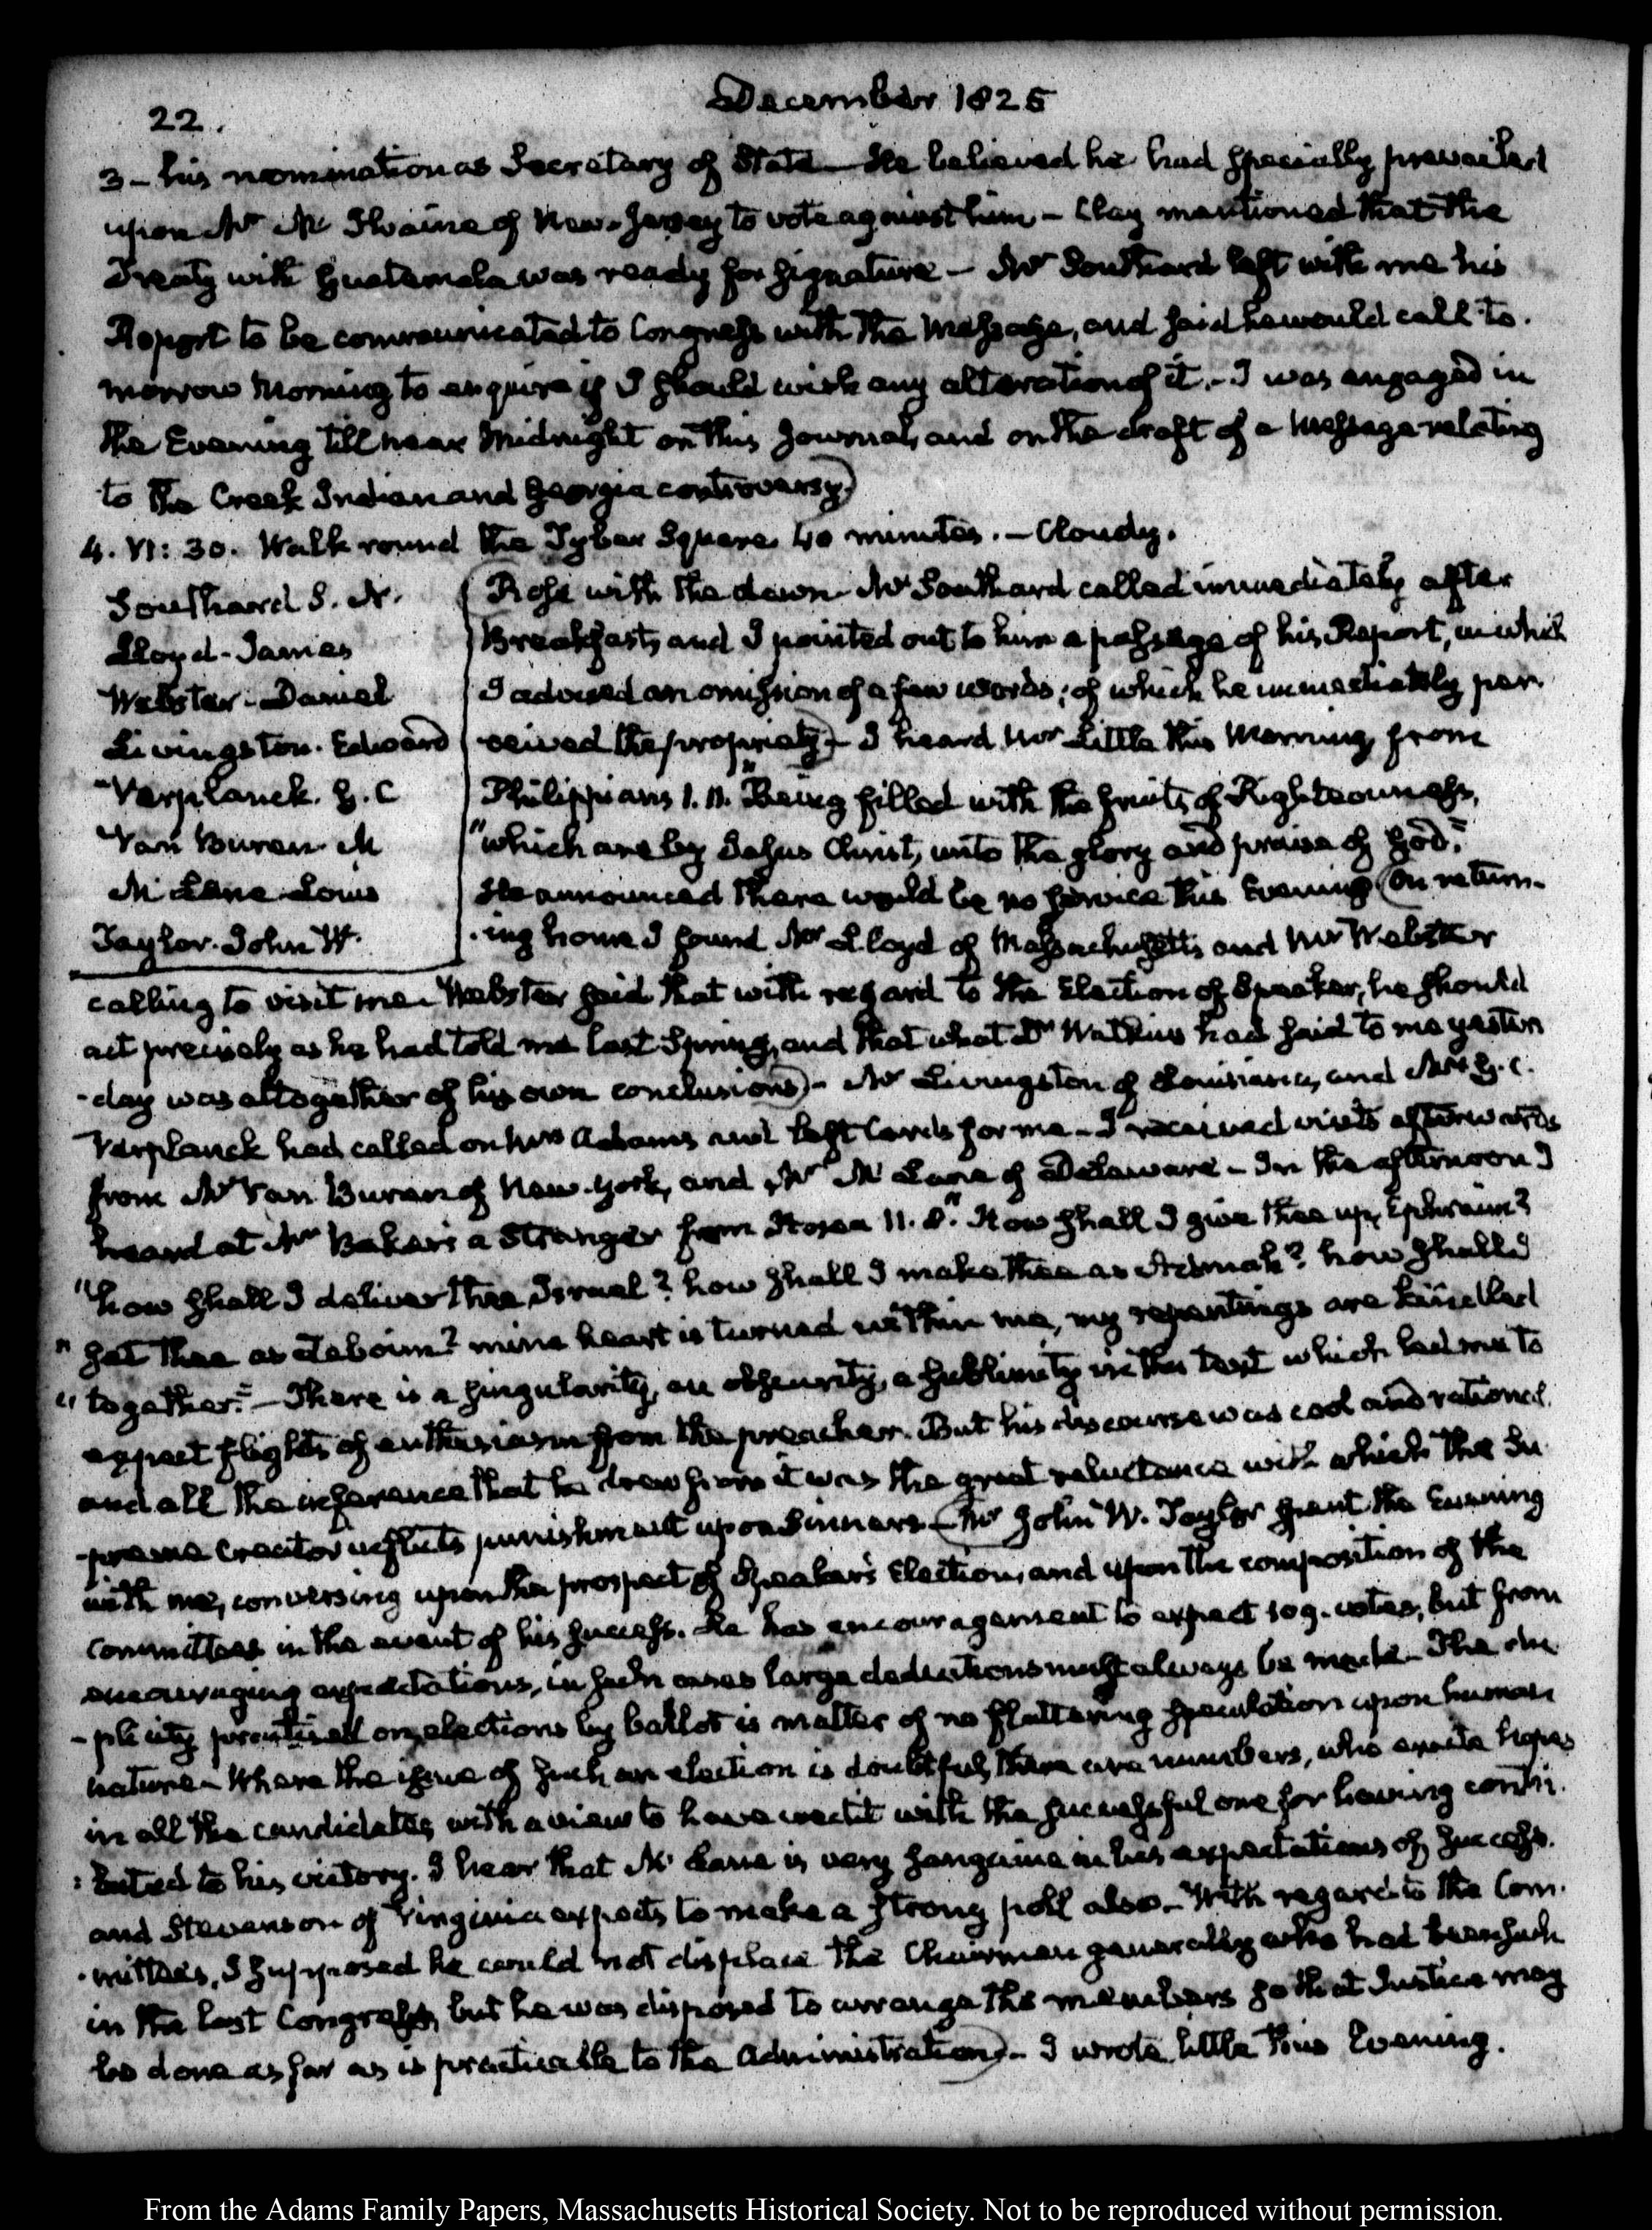 22.
December 1825
3 – his nomination as Secretary of State – He believed he had specially prevailed
upon Mr Mc Ilvaine of New-Jersey to vote against him – Clay mentioned that the
Treaty with Guatemala was ready for signature – Mr Southard left with me his
Report to be communicated to Congress with the Message, and said he would call to-
morrow Morning to enquire if I should wish any alteration of it. – I was engaged in
the Evening till near Midnight on this Journal, and on the draft of a Message relating
to the Creek Indian and Georgia controversy)
4. VI: 30. Walk round the Tyber Square 40 minutes. – Cloudy.
Southard S. L.
Lloyd - James
Webster - Daniel
Livingston. Edward
Verplanck. G. C
Van Buren M
Mc Lane Louis
Taylor. John W.
(Rose with the dawn – Mr Southard called immediately after
Breakfast, and I pointed out to him a passage of his Report, in which
I advised an omission of a few words; of which he immediately per-
ceived the propriety) – I heard Mr Little this Morning, from
Philippians 1. 11. "Being filled with the fruits of Righteousness,
"which are by Jesus Christ, unto the glory and praise of God."
He announced there would be no service this Evening (On return-
-ing home I found Mr Lloyd of Massachusetts and Mr Webster
calling to visit me – Webster said that with regard to the Election of Speaker, he should
act precisely as he had told me last Spring, and that what Dr Watkins had said to me yester
-day was altogether of his own conclusions) – Mr Livingston of Louisiana, and Mr G. C.
Verplanck had called on Mrs Adams and left Cards for me – I received visits afterwards
from Mr Van Buren of New-York, and Mr Mc Lane of Delaware – In the afternoon I
heard at Mr Baker's a Stranger from Hosea 11. 8. "How shall I give thee up, Ephraim?
"how shall I deliver thee, Israel? how shall I make thee as Admah? how shall I
"set thee as Zeboim? mine heart is turned within me, my repentings are kindled
"together." – There is a singularity, an obscurity, a sublimity in this text which led me to
expect flights of enthusiasm from the preacher. But his discourse was cool and rational.
and all the inference that he drew from it was the great reluctance with which the Su
-preme Creator inflicts punishment upon Sinners – (Mr John W. Taylor spent the Evening
with me, conversing upon the prospect of Speaker's Election, and upon the composition of the
Committees in the event of his success. He has encouragement to expect 109. votes, but from
encouraging expectations, in such cases large deductions must always be made – The du
-plicity practised on elections by ballot is matter of no flattering speculation upon human
nature – Where the issue of such an election is doubtful, there are numbers, who excite hopes
in all the candidates, with a view to have credit with the successful one for having contri-
-buted to his victory. I hear that Mc Lane is very sanguine in his expectations of success.
and Stevenson of Virginia expects to make a strong poll also – With regard to the Com-
-mittees, I supposed he could not displace the Chairmen generally who had been such
in the last Congress, but he was disposed to arrange the members so that Justice may
be done as far as is practicable to the Administration) – I wrote little this Evening.
From the Adams Family Papers, Massachusetts Historical Society. Not to be reproduced without permission.